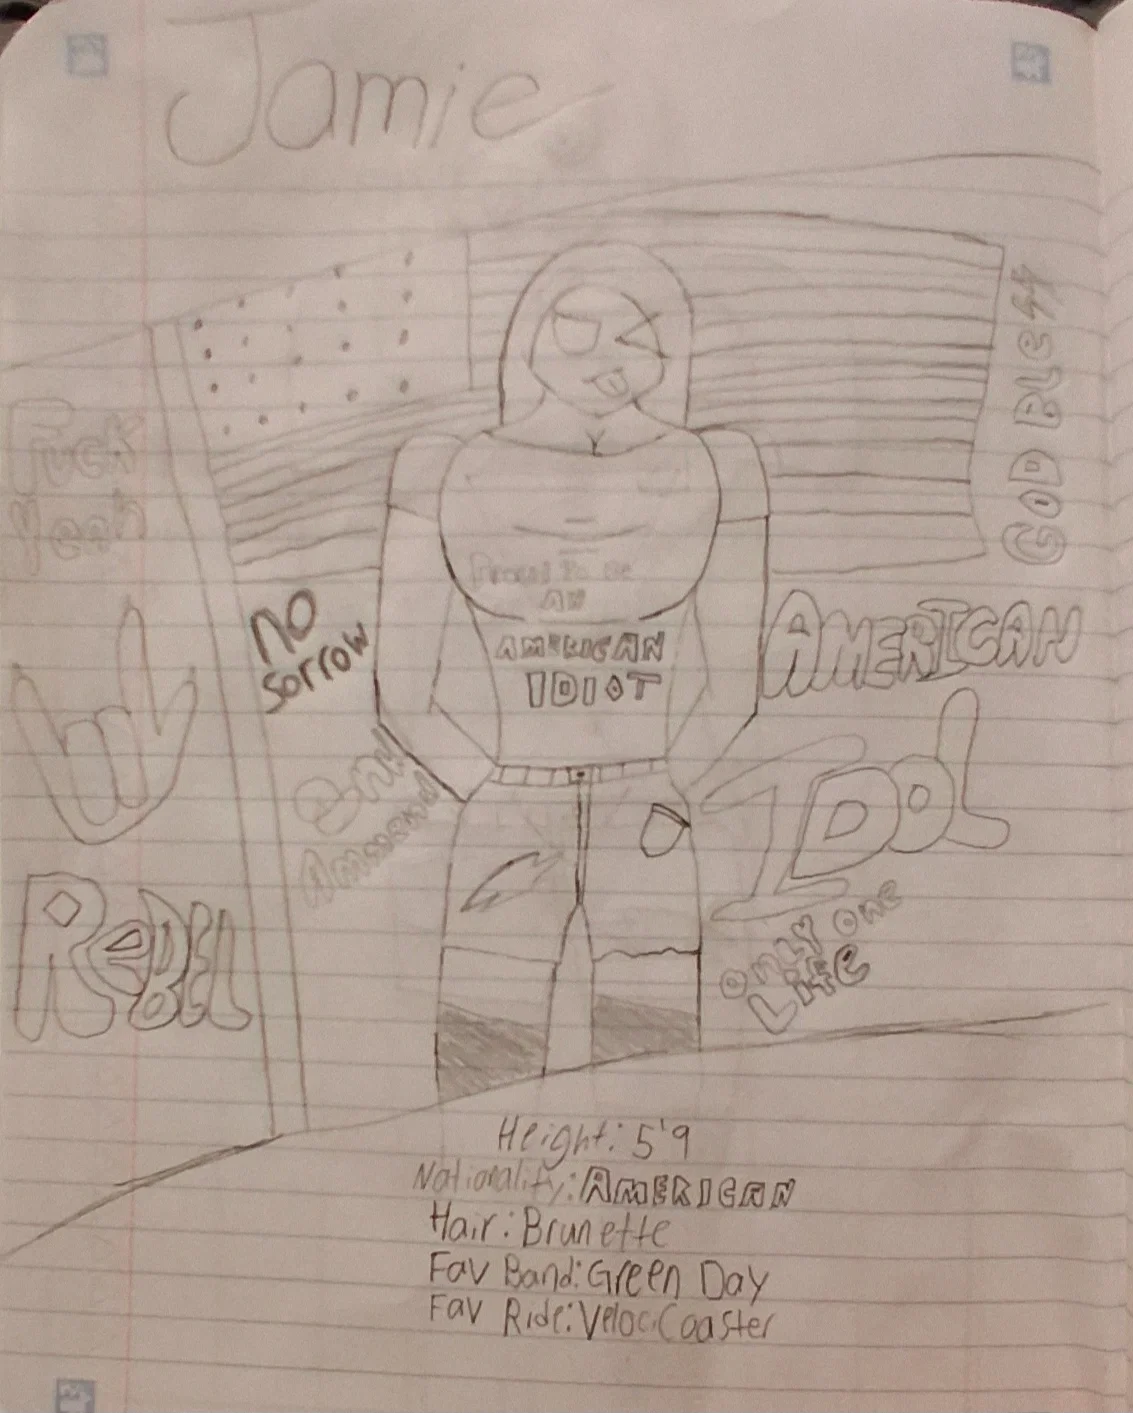 Jamie
Fuck
Yeah
GOD BLESS
NO
Sorrow
Proud To Be
AN
AMERICAN
IDIOT
AMERICAN
IDOL
Only One
Life
REBEL
Height: 5'9
Nationality: AMERICAN
Hair: Brunette
Fav Band: Green Day
Fav Ride: VelociCoaster